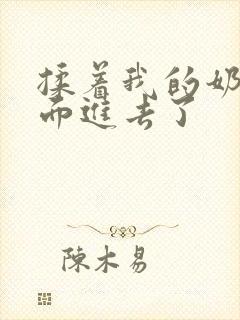 揉着我的奶
而進去了
陳木易